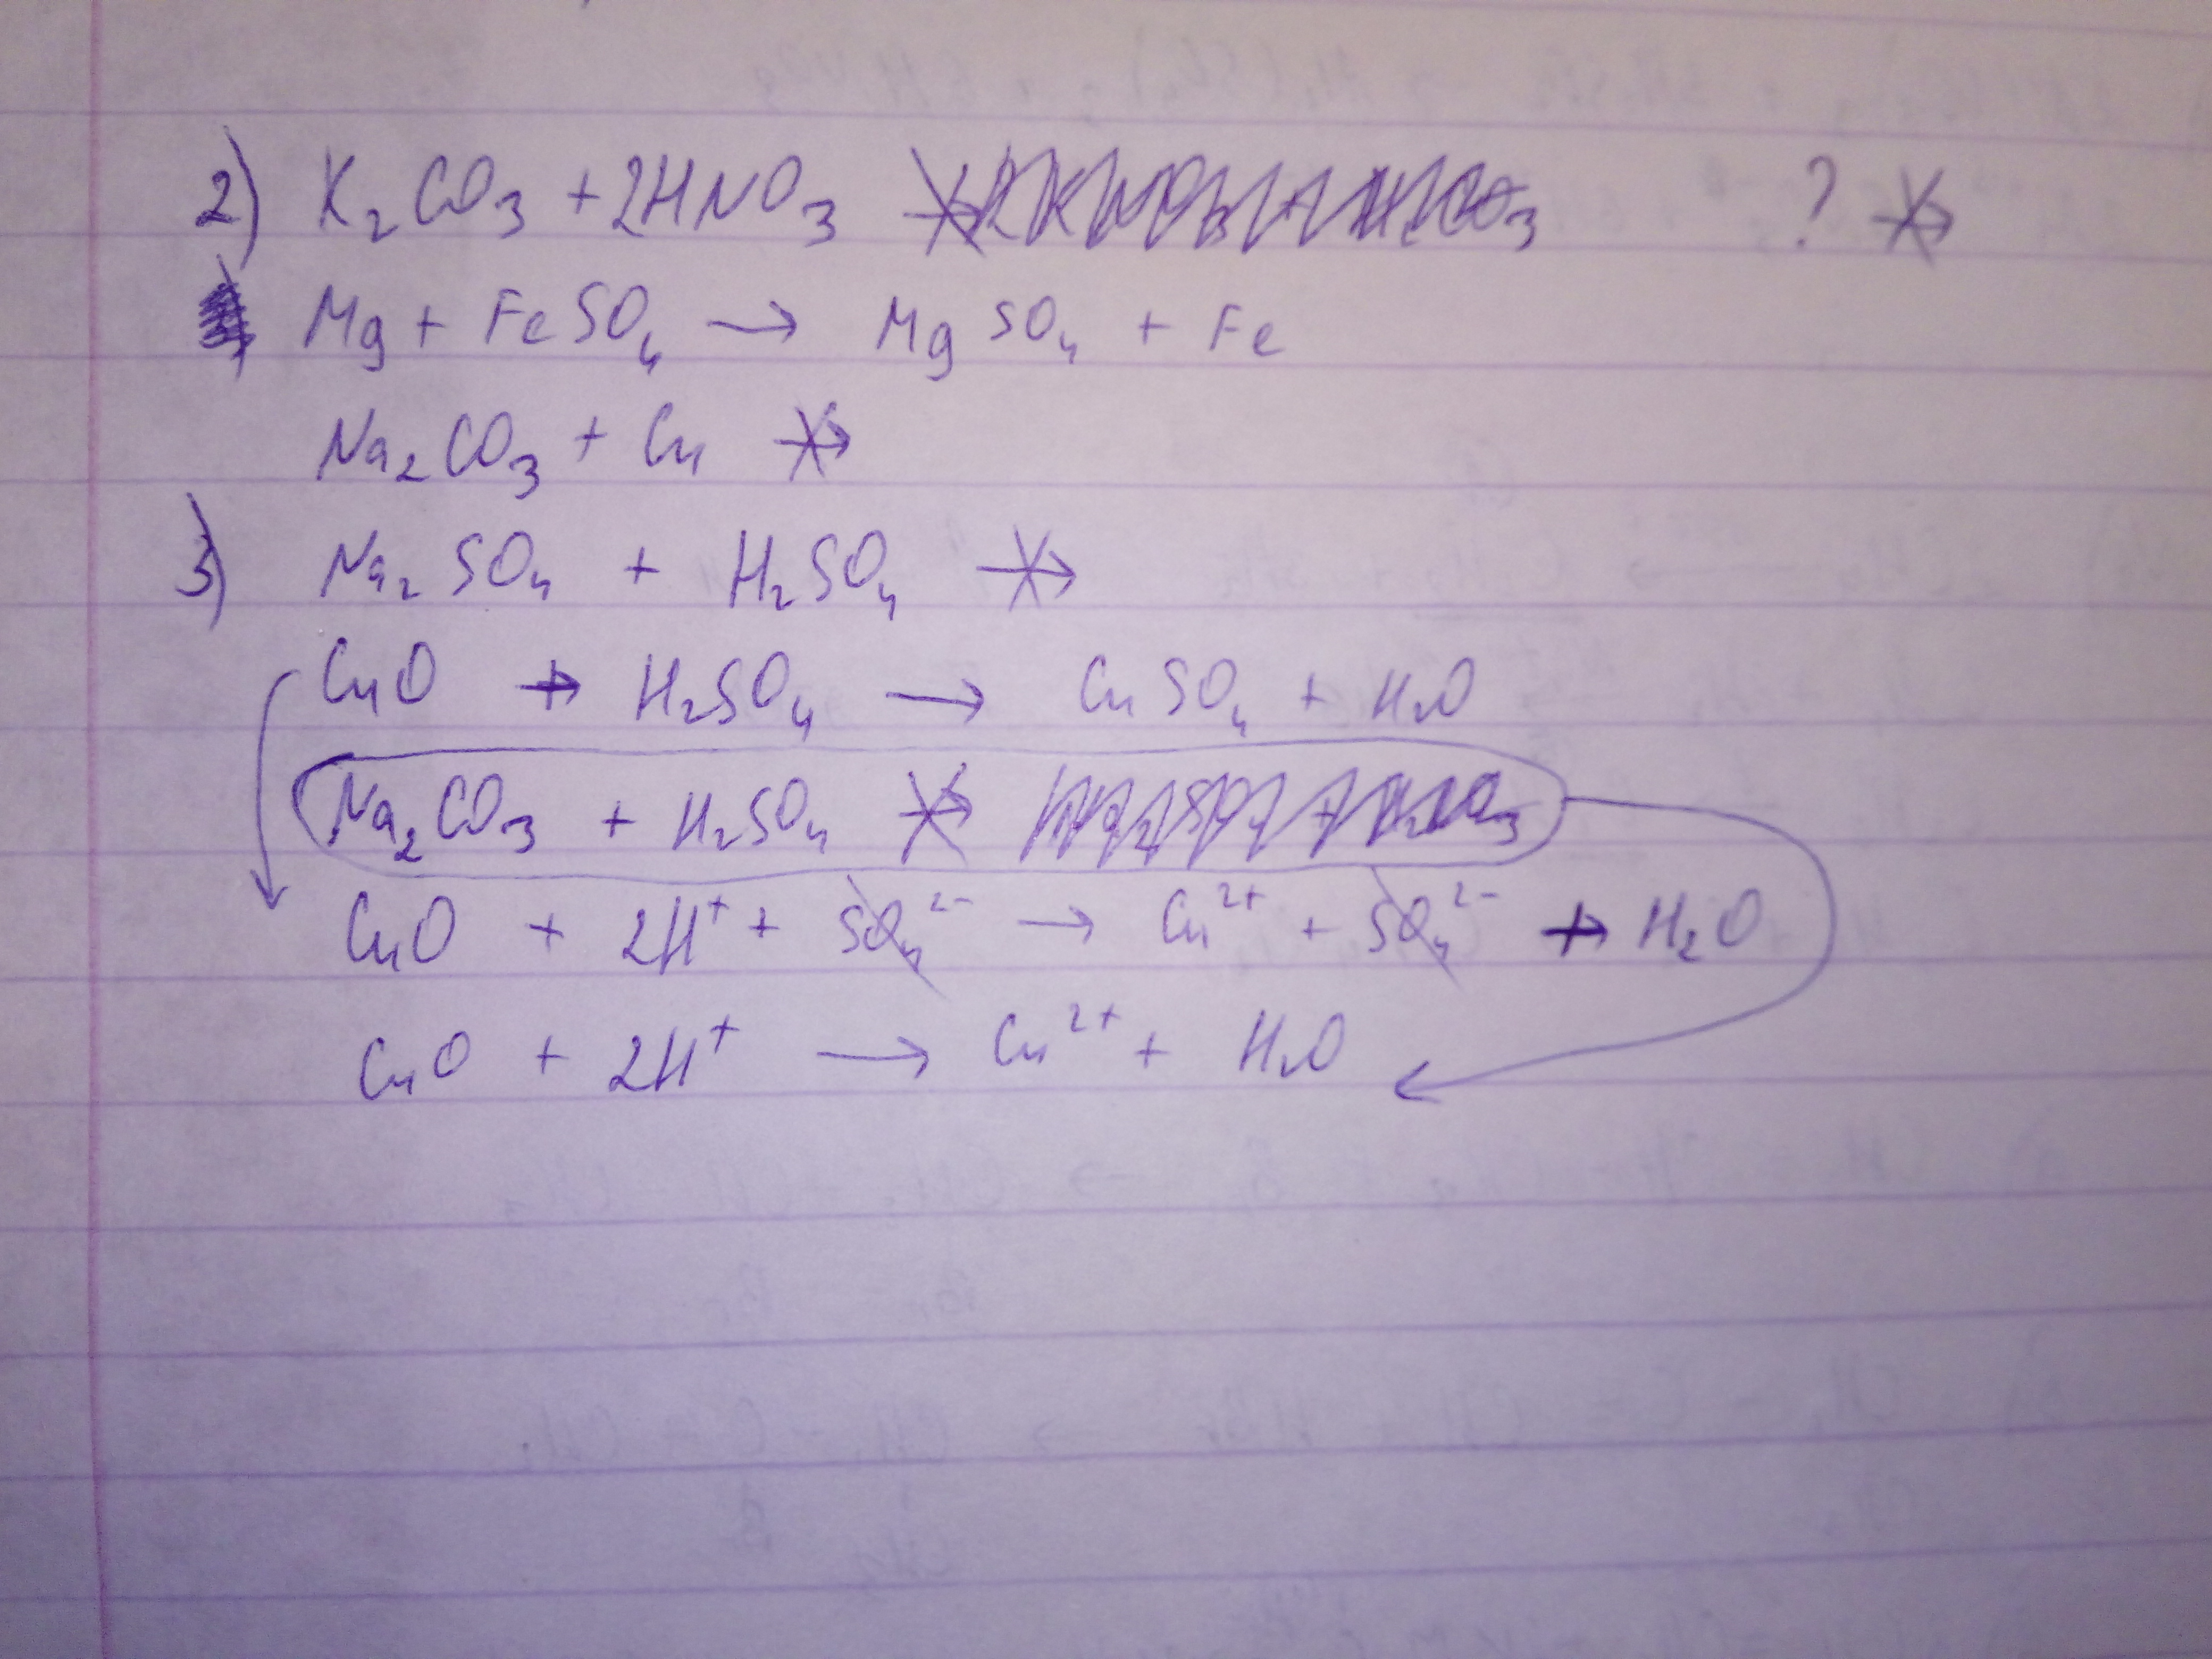 2) K₂CO₃ + 2HNO₃ ? ↛
Mg + FeSO₄ → MgSO₄ + Fe
Na₂CO₃ + Cu ↛
3) Na₂SO₄ + H₂SO₄ ↛
CuO + H₂SO₄ → CuSO₄ + H₂O
Na₂CO₃ + H₂SO₄ ↛
CuO + 2H⁺ + SO₄²⁻ → Cu²⁺ + SO₄²⁻ + H₂O
CuO + 2H⁺ → Cu²⁺ + H₂O